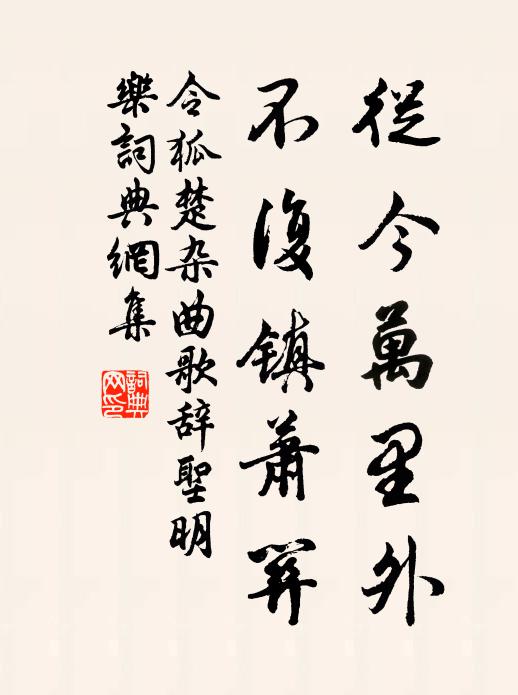 從今萬里外
不復鎮蕭關
令狐楚杂曲歌辞聖明
樂詞典網集
詞典网印